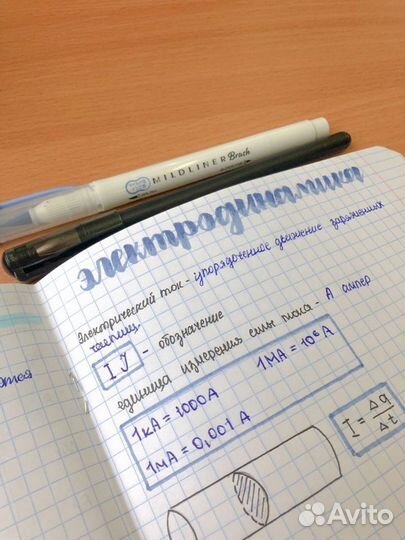 MILDLINER Brush
электродинамика
Электрический ток - упорядоченное движение заряженных
частиц
I, J - обозначение
единица измерения силы тока - А ампер
1кА = 1000А 1МА = 10⁶ А
1мА = 0,001 А
I = Δq/Δt
ются
Avito